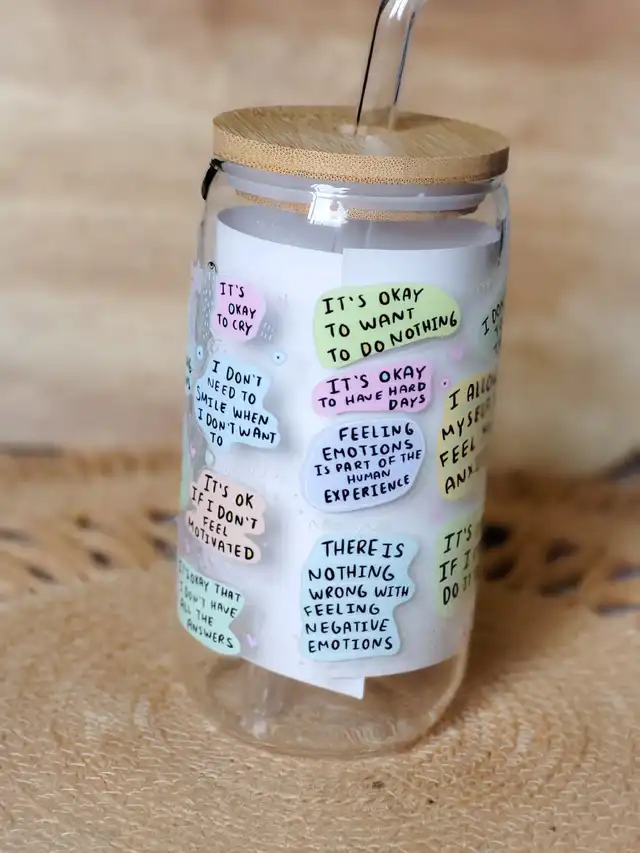 IT'S
OKAY
TO CRY
I DON'T
NEED TO
SMILE WHEN
I DON'T WANT
TO
IT'S OK
IF I DON'T
FEEL
MOTIVATED
IT'S OKAY THAT
I DON'T HAVE
ALL THE
ANSWERS
IT'S OKAY
TO WANT
TO DO NOTHING
IT'S OKAY
TO HAVE HARD
DAYS
FEELING
EMOTIONS
IS PART OF THE
HUMAN
EXPERIENCE
THERE IS
NOTHING
WRONG WITH
FEELING
NEGATIVE
EMOTIONS
I
I ALLOW
MYSELF
FEEL
IT'S
IF I
DO IT